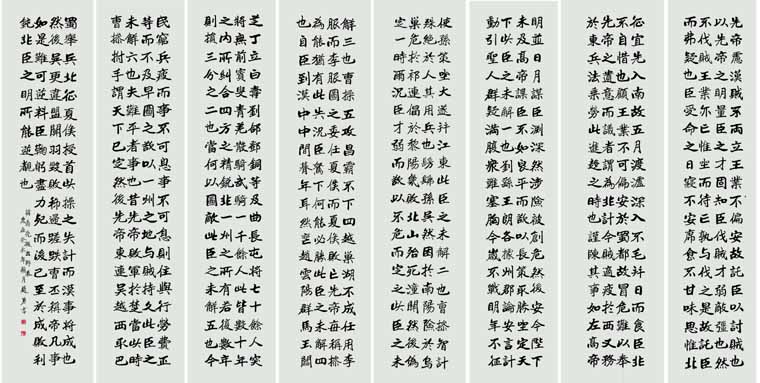 先帝慮漢賊不兩立王業不偏安故託臣以討賊也
以先帝之明量臣之才固知臣伐賊才弱敵強也然
不伐賊王業亦亡惟坐而待亡孰與伐之是故託臣
而弗疑也臣受命之日寢不安席食不甘味思惟北
征宜先入南故五月渡瀘深入不毛并日而食臣非
不自惜也顧王業不可偏安於蜀都故冒危難以奉
先帝之遺意而議者謂為非計今賊適疲於西又務
於東兵法乘勞此進趨之時也謹陳其事如左高帝
明並日月謀臣淵深然涉險被創危然後安今陛下
未及高帝謀臣不如良平而欲以長計取勝坐定天
下此臣之未解一也劉繇王朗各據州郡論安言計
動引聖人群疑滿腹眾難塞胸今歲不戰明年不征
使孫策坐大遂并江東此臣之未解二也曹操智計
殊絕於人其用兵也髣髴孫吳然困於南陽險於烏
巢危於祁連偪於黎陽幾敗北山殆死潼關然後偽
定一時爾況臣才弱而欲以不危而定之此臣之未
解三也曹操五攻昌霸不下四越巢湖不成任用李
服而李服圖之委任夏侯而夏侯敗亡先帝每稱操
為能猶有此失況臣駑下何能必勝此臣之未解四
也自臣到漢中中間朞年耳然喪趙雲陽群馬玉閻
芝丁立白壽劉郃鄧銅等及曲長屯將七十餘人突
將無前賨叟青羌散騎武騎一千餘人此皆數十年
之內所糾合四方之精銳非一州之所有若復數年
則損三分之二也當何以圖敵此臣之未解五也今
民窮兵疲而事不可息事不可息則住與行勞費正
等而不及早圖之欲以一州之地與賊持久此臣之
未解六也夫難平者事也昔先帝敗軍於楚當此時
曹操拊手謂天下已定然後先帝東連吳越西取巴
蜀舉兵北征夏侯授首此操之失計而漢事將成也
然後吳更違盟關羽毀敗秭歸蹉跌曹丕稱帝凡事
如是難可逆料臣鞠躬盡力死而後已至於成敗利
鈍非臣之明所能逆覩也